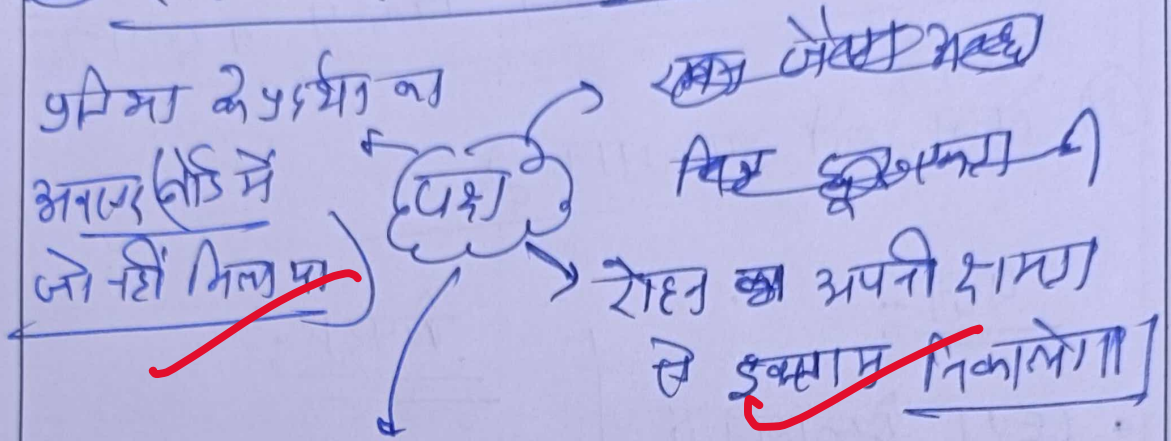 प्रतिभा के प्रदर्शन का
अवसर (बोर्ड में
जो नहीं मिला था)
पक्ष
रोहन का अपनी क्षमता
से इक्साम निकालेगा